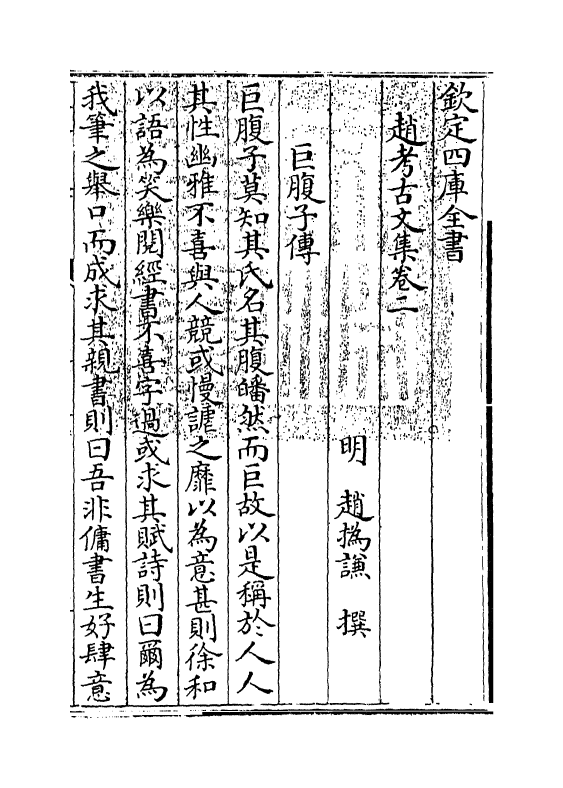 欽定四庫全書
趙考古文集卷二
明　趙撝謙　撰
巨腹子傳
巨腹子莫知其氏名其腹皤然而巨故以是稱於人人
其性幽雅不喜與人競或慢謔之靡以為意甚則徐和
以語為笑樂閱經書不喜字過或求其賦詩則曰爾為
我筆之舉口而成求其親書則曰吾非傭書生好肆意